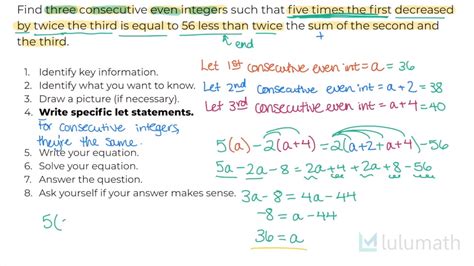 Find three consecutive even integers such that five times the first decreased
by twice the third is equal to 56 less than twice the sum of the second and
the third.
end
+
1. Identify key information.
2. Identify what you want to know.
3. Draw a picture (if necessary).
4. Write specific let statements.
For consecutive integers,
they're the same.
5. Write your equation.
6. Solve your equation.
7. Answer the question.
8. Ask yourself if your answer makes sense.
5(
Let 1st consecutive even int = a = 36
Let 2nd consecutive even int = a+2 = 38
Let 3rd consecutive even int = a+4 = 40
5(a) - 2(a+4) = 2(a+2+a+4) - 56
5a - 2a - 8 = 2a + 4 + 2a + 8 - 56
3a - 8 = 4a - 44
-8 = a - 44
36 = a
lulumath